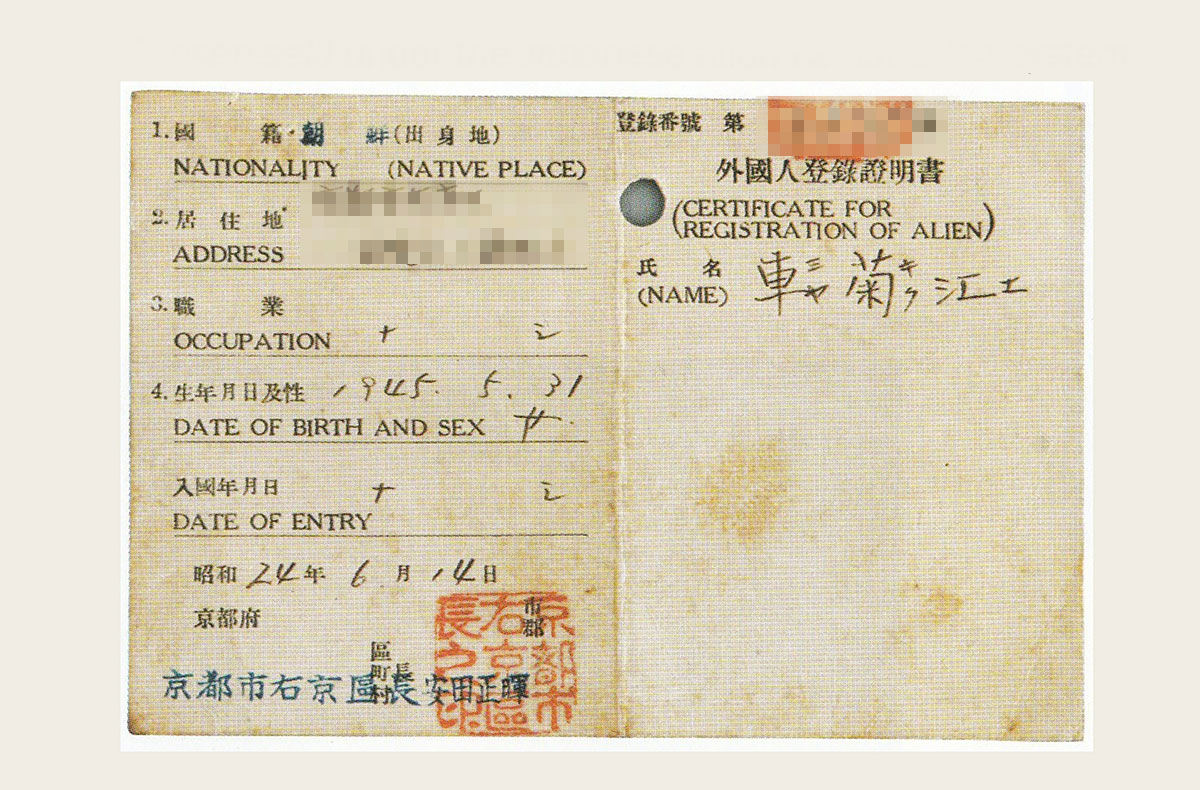 1. 國 籍・朝 鮮(出 身 地)
NATIONALITY (NATIVE PLACE)
2. 居 住 地
ADDRESS
3. 職 業
OCCUPATION ナ シ
4. 生年月日及性 1945. 5. 31
DATE OF BIRTH AND SEX 女
入國年月日 ナ シ
DATE OF ENTRY
昭和 24 年 6 月 14 日
京都府
市
郡
區
町 長
村
京都市右京區長 安田正暉
京都市
右京區
長之印
登錄番號 第
外國人登錄證明書
(CERTIFICATE FOR
REGISTRATION OF ALIEN)
氏 名
(NAME) 車 菊 江